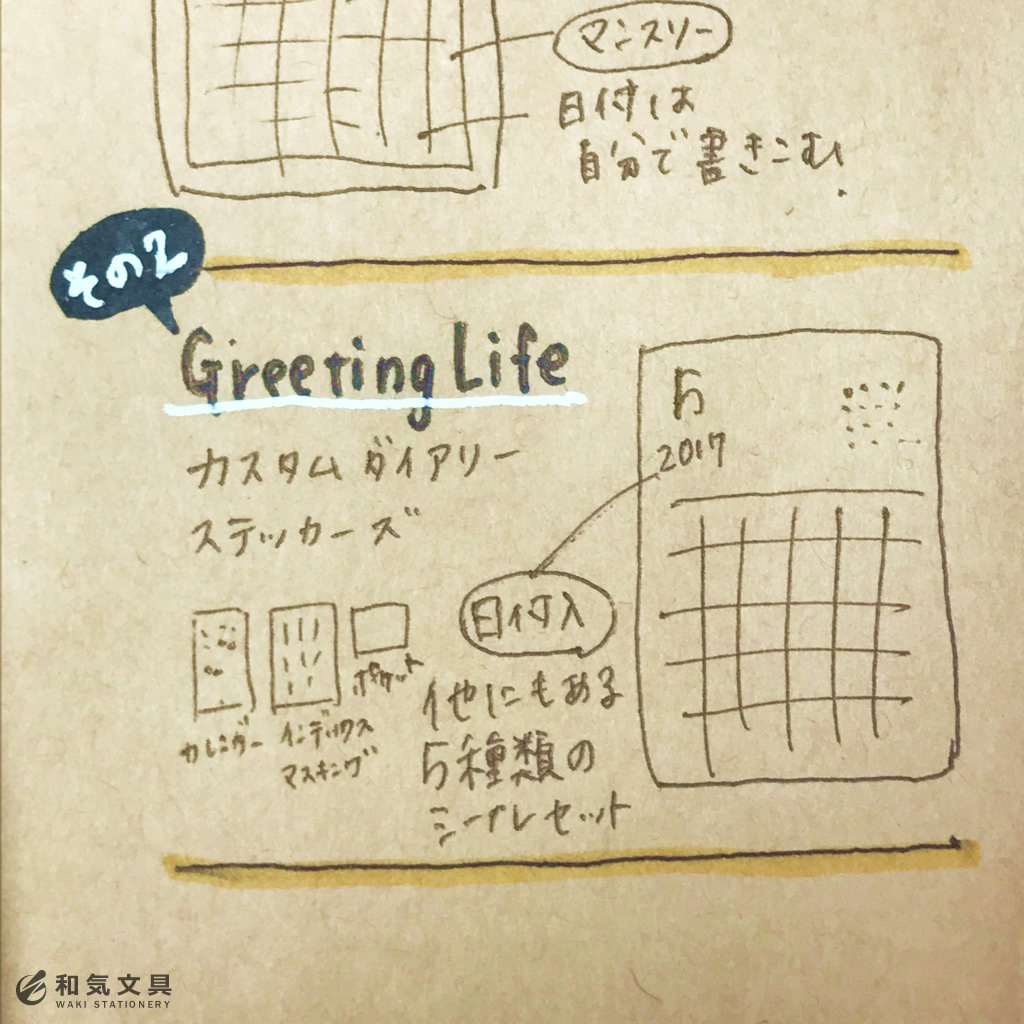 マンスリー
日付は
自分で書きこむ!
その2
Greeting Life
カスタムダイアリー
ステッカーズ
5
2017
日付入
他にもある
5種類の
シールセット
カレンダー
インデックス
マスキング
ポケット
和気文具
WAKI STATIONERY